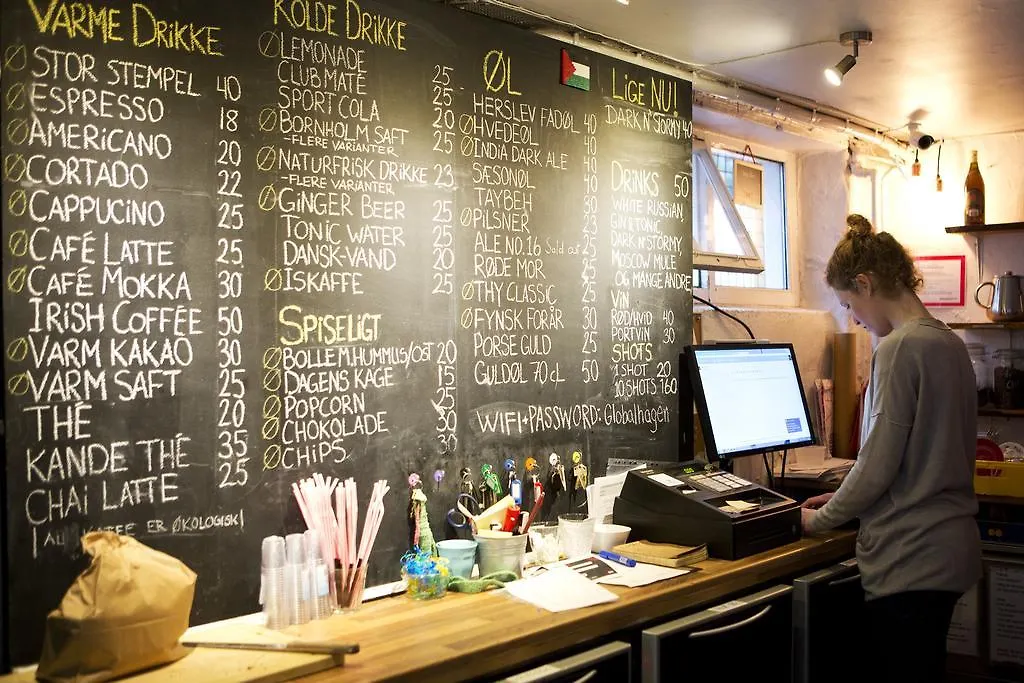 VARME DRIKKE
Ø STOR STEMPEL 40
Ø ESPRESSO 18
Ø AMERICANO 20
Ø CORTADO 22
Ø CAPPUCINO 25
Ø CAFÉ LATTE 25
Ø CAFÉ MOKKA 30
IRISH COFFÉE 50
Ø VARM KAKAO 30
Ø VARM SAFT 25
THÉ 20
KANDE THÉ 35
CHAI LATTE 25
KAFFE ER ØKOLOGISK
KOLDE DRIKKE
Ø LEMONADE 25
CLUB MATE 25
SPORT COLA 20
Ø BORNHOLM SAFT 25
-FLERE VARIANTER
Ø NATURFRISK DRIKKE 23
-FLERE VARIANTER
Ø GINGER BEER 25
TONIC WATER 25
DANSK-VAND 20
Ø ISKAFFE 25
SPISELIGT
Ø BOLLE M.HUMMUS/OST 20
Ø DAGENS KAGE 15
Ø POPCORN
Ø CHOKOLADE 30
Ø CHIPS 30
ØL
HERSLEV FADØL 40
Ø HVEDEØL 40
Ø INDIA DARK ALE 40
SÆSONØL 40
TAYBEH 30
Ø PILSNER 23
ALE NO.16 Sold out 25
RØDE MOR 25
Ø THY CLASSIC 25
Ø FYNSK FORÅR 30
PORSE GULD 25
GULDØL 70 cL 50
WIFI+PASSWORD: Globalhagen
LIGE NU!
DARK N' STORMY 40
DRINKS 50
WHITE RUSSIAN,
GIN & TONIC,
DARK N STORMY,
MOSCOW MULE
OG MANGE ANDRE
VIN
RØD/HVID 40
PORTVIN 30
SHOTS
1 SHOT 20
10 SHOTS 160